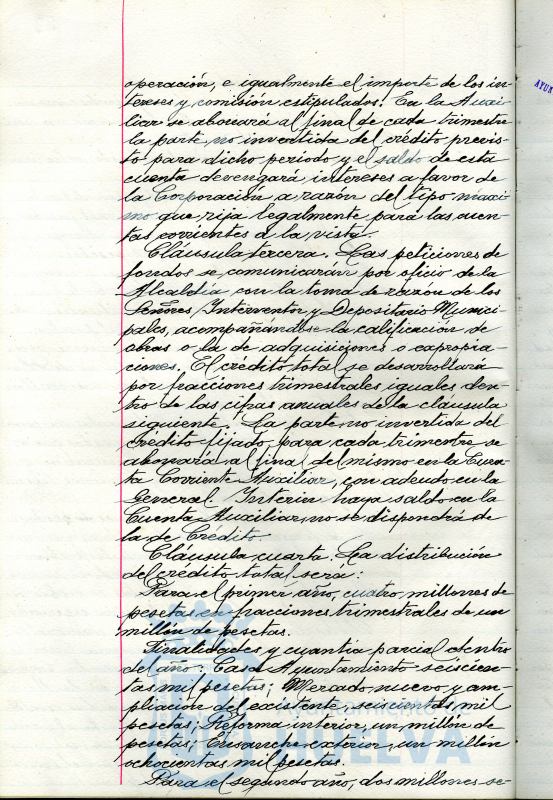 operación, e igualmente el importe de los in-
tereses y comisión estipulados. En la Auxi-
liar se abonará al final de cada trimestre
la parte no invertida del crédito previs-
to para dicho periodo y el saldo de esta
cuenta devengará intereses a favor de
la Corporación a razón del tipo máxi-
mo que rija legalmente para las cuen-
tas corrientes a la vista.
Cláusula tercera. Las peticiones de
fondos se comunicarán por oficio de la
Alcaldía con la toma de razón de los
Señores Interventor y Depositario Munici-
pales, acompañándose la calificación de
obras o la de adquisiciones o expropia-
ciones. El crédito total se desarrollará
por fracciones trimestrales iguales den-
tro de las cifras anuales de la cláusula
siguiente. La parte no invertida del
crédito fijado para cada trimestre se
abonará al final del mismo en la Cuen-
ta Corriente Auxiliar, con adeudo en la
General. Interin haya saldo en la
Cuenta Auxiliar, no se dispondrá de
la de Crédito.
Cláusula cuarta. La distribución
del crédito total será:
Para el primer año, cuatro millones de
pesetas en fracciones trimestrales de un
millón de pesetas.
Finalidades y cuantía parcial dentro
del año: Casa Ayuntamiento seiscien-
tas mil pesetas; Mercado nuevo y am-
pliación del existente, seiscientas mil
pesetas; Reforma interior, un millón de
pesetas; Ensanche exterior, un millón
ochocientas mil pesetas.
Para el segundo año, dos millones se-
HUELVA
AYUN